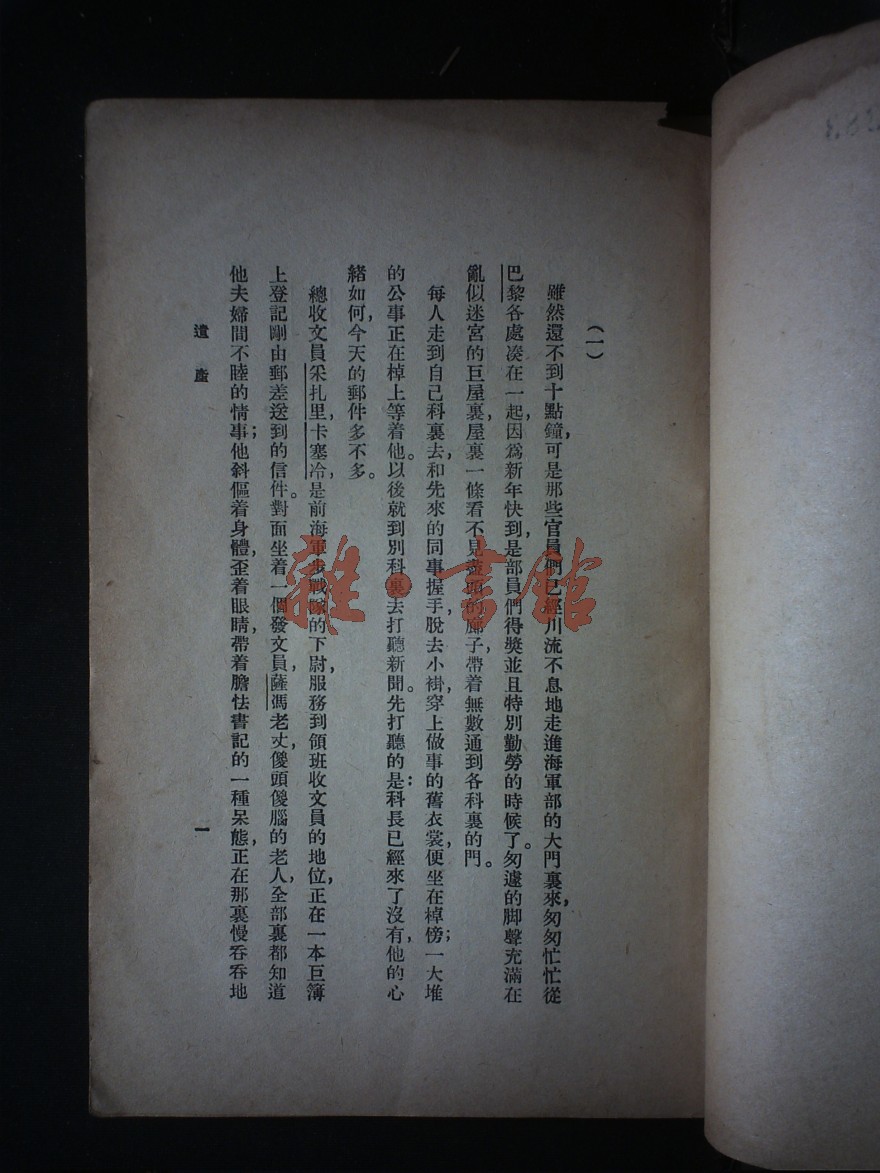 (一)
雖然還不到十點鐘，可是那些官員們已經川流不息地走進海軍部的大門裏來，匆匆忙忙從
巴黎各處湊在一起，因爲新年快到，是部員們得獎並且特別勤勞的時候了。匆遽的脚聲充滿在
亂似迷宮的巨屋裏，屋裏一條看不見盡頭的廊子，帶着無數通到各科裏的門。
每人走到自己科裏去，和先來的同事握手，脫去小褂，穿上做事的舊衣裳，便坐在棹傍；一大堆
的公事正在棹上等着他。以後就到別科裏去打聽新聞。先打聽的是：科長已經來了沒有，他的心
緒如何，今天的郵件多不多。
總收文員采扎里，卡塞冷，是前海軍步戰隊的下尉，服務到領班收文員的地位，正在一本巨簿
上登記剛由郵差送到的信件。對面坐着一個發文員，薩馮老丈，傻頭傻腦的老人，全部裏都知道
他夫婦間不睦的情事；他斜傴着身體，歪着眼睛，帶着膽怯書記的一種呆態，正在那裏慢吞吞地
遺產
一
雜·書館